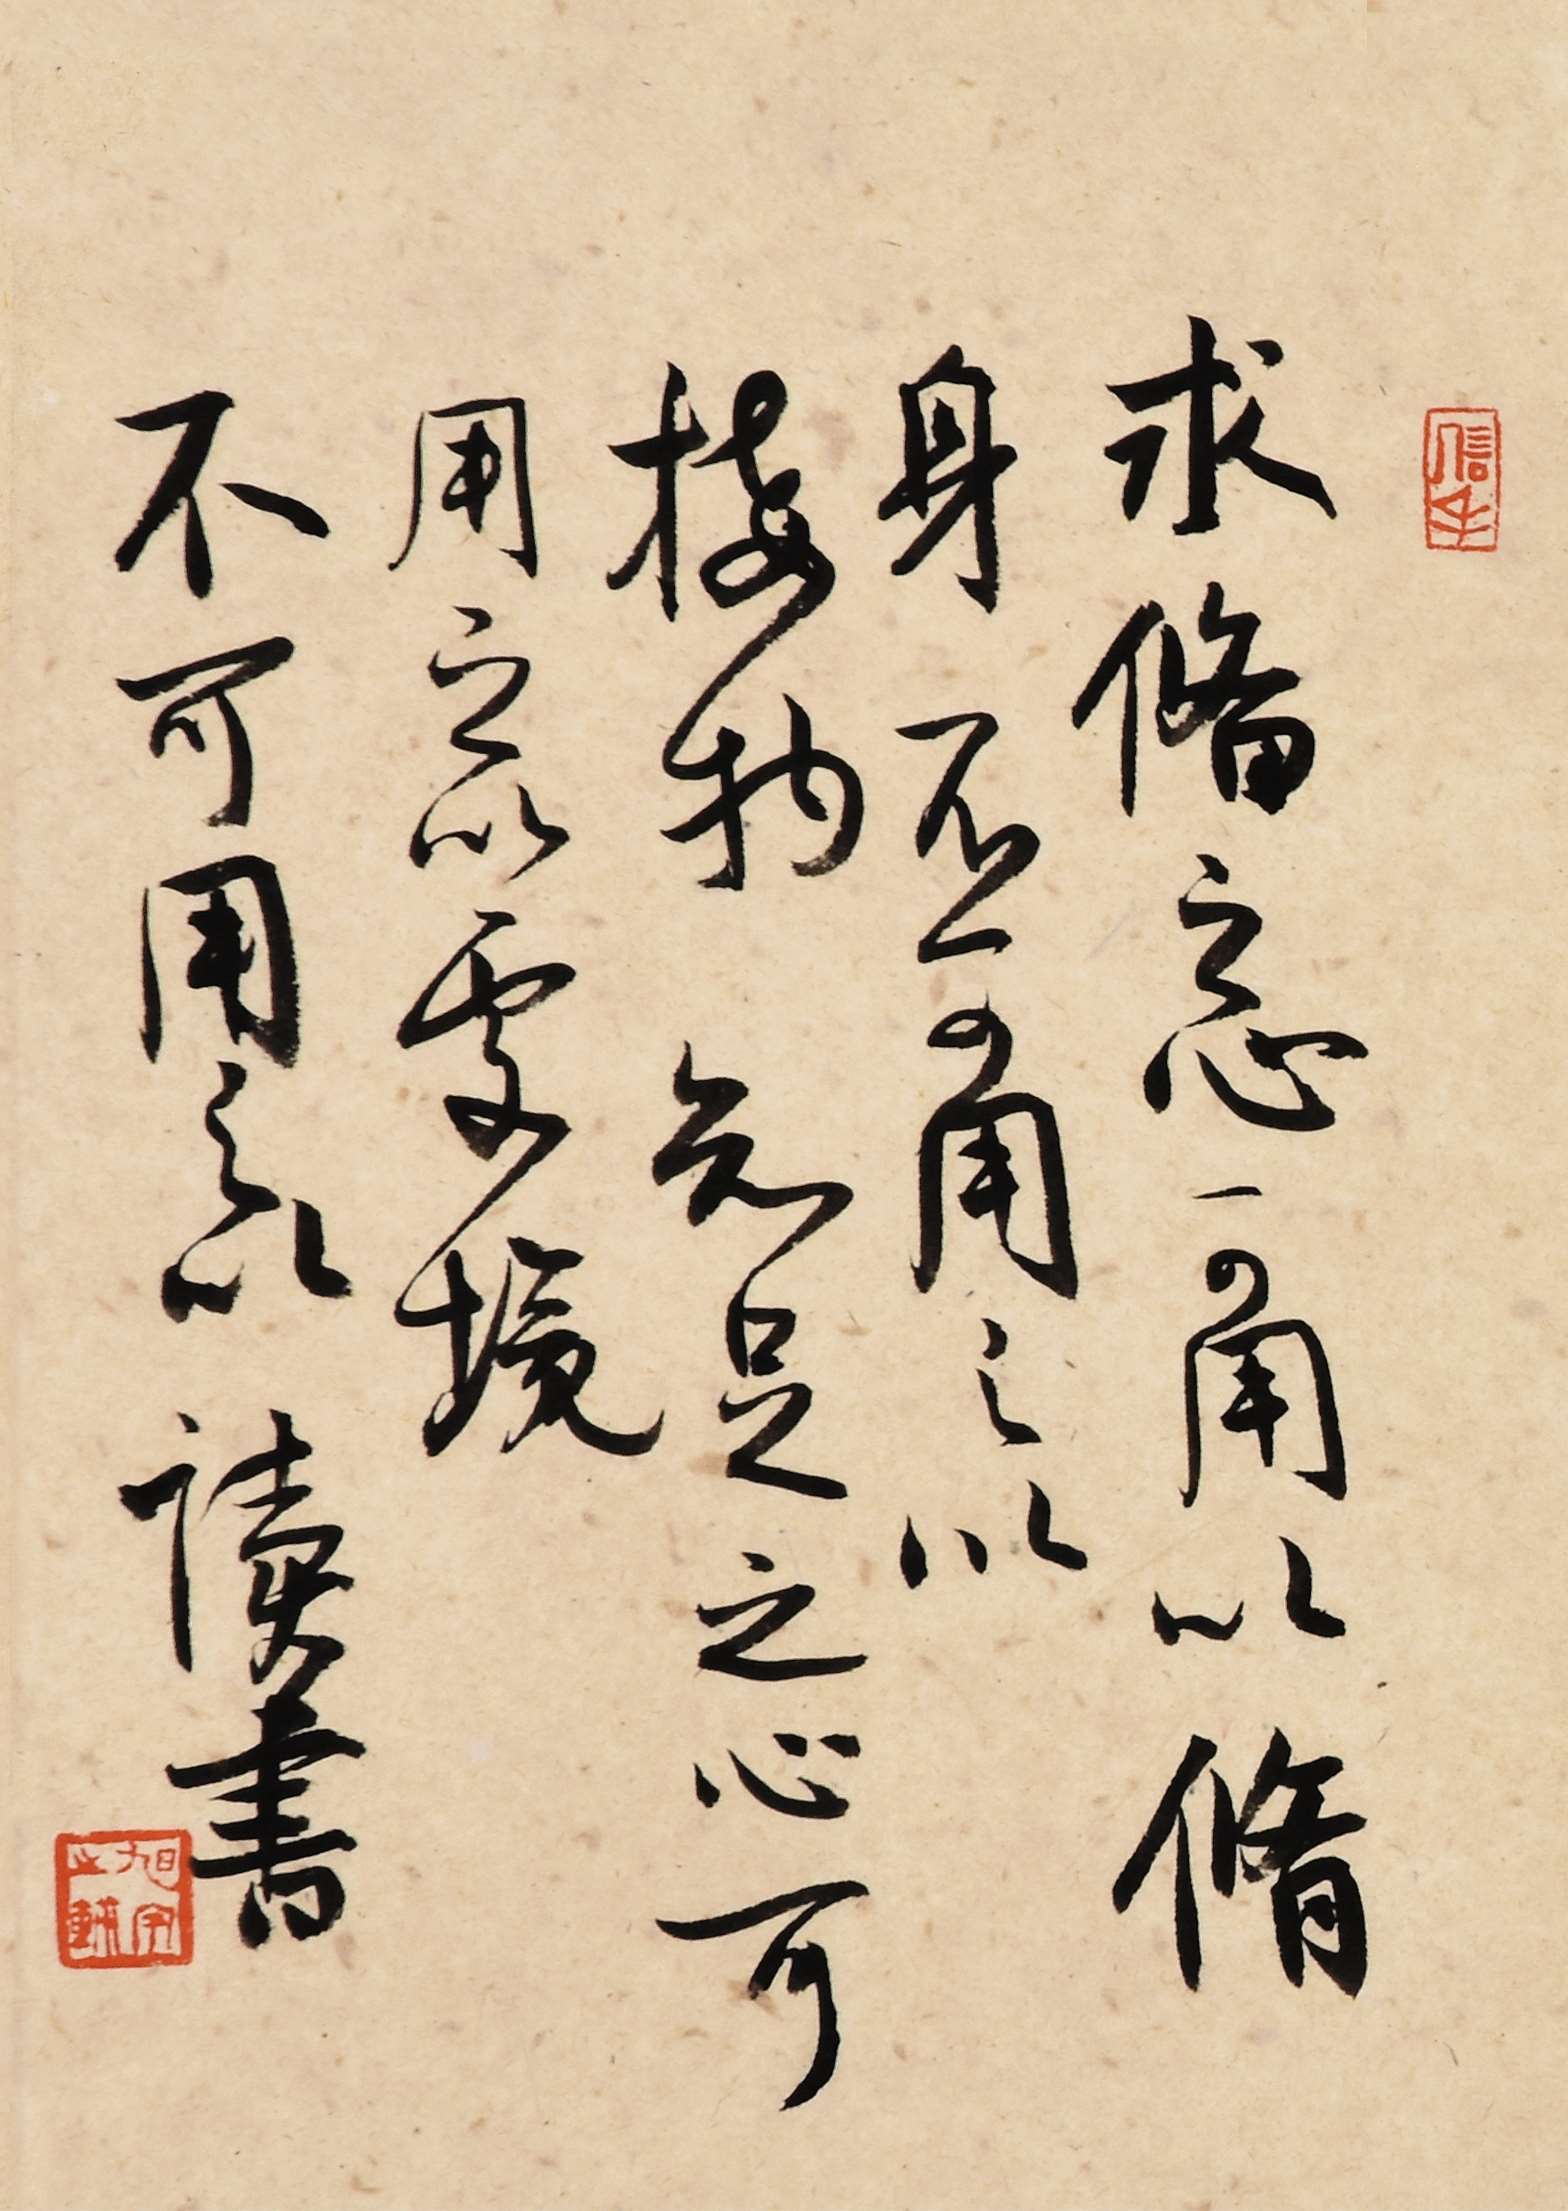 信手
求俻之心可用以脩
身不可用之以
接物知足之心可
用之以處境
不可用之以讀書
旭宇之鉨